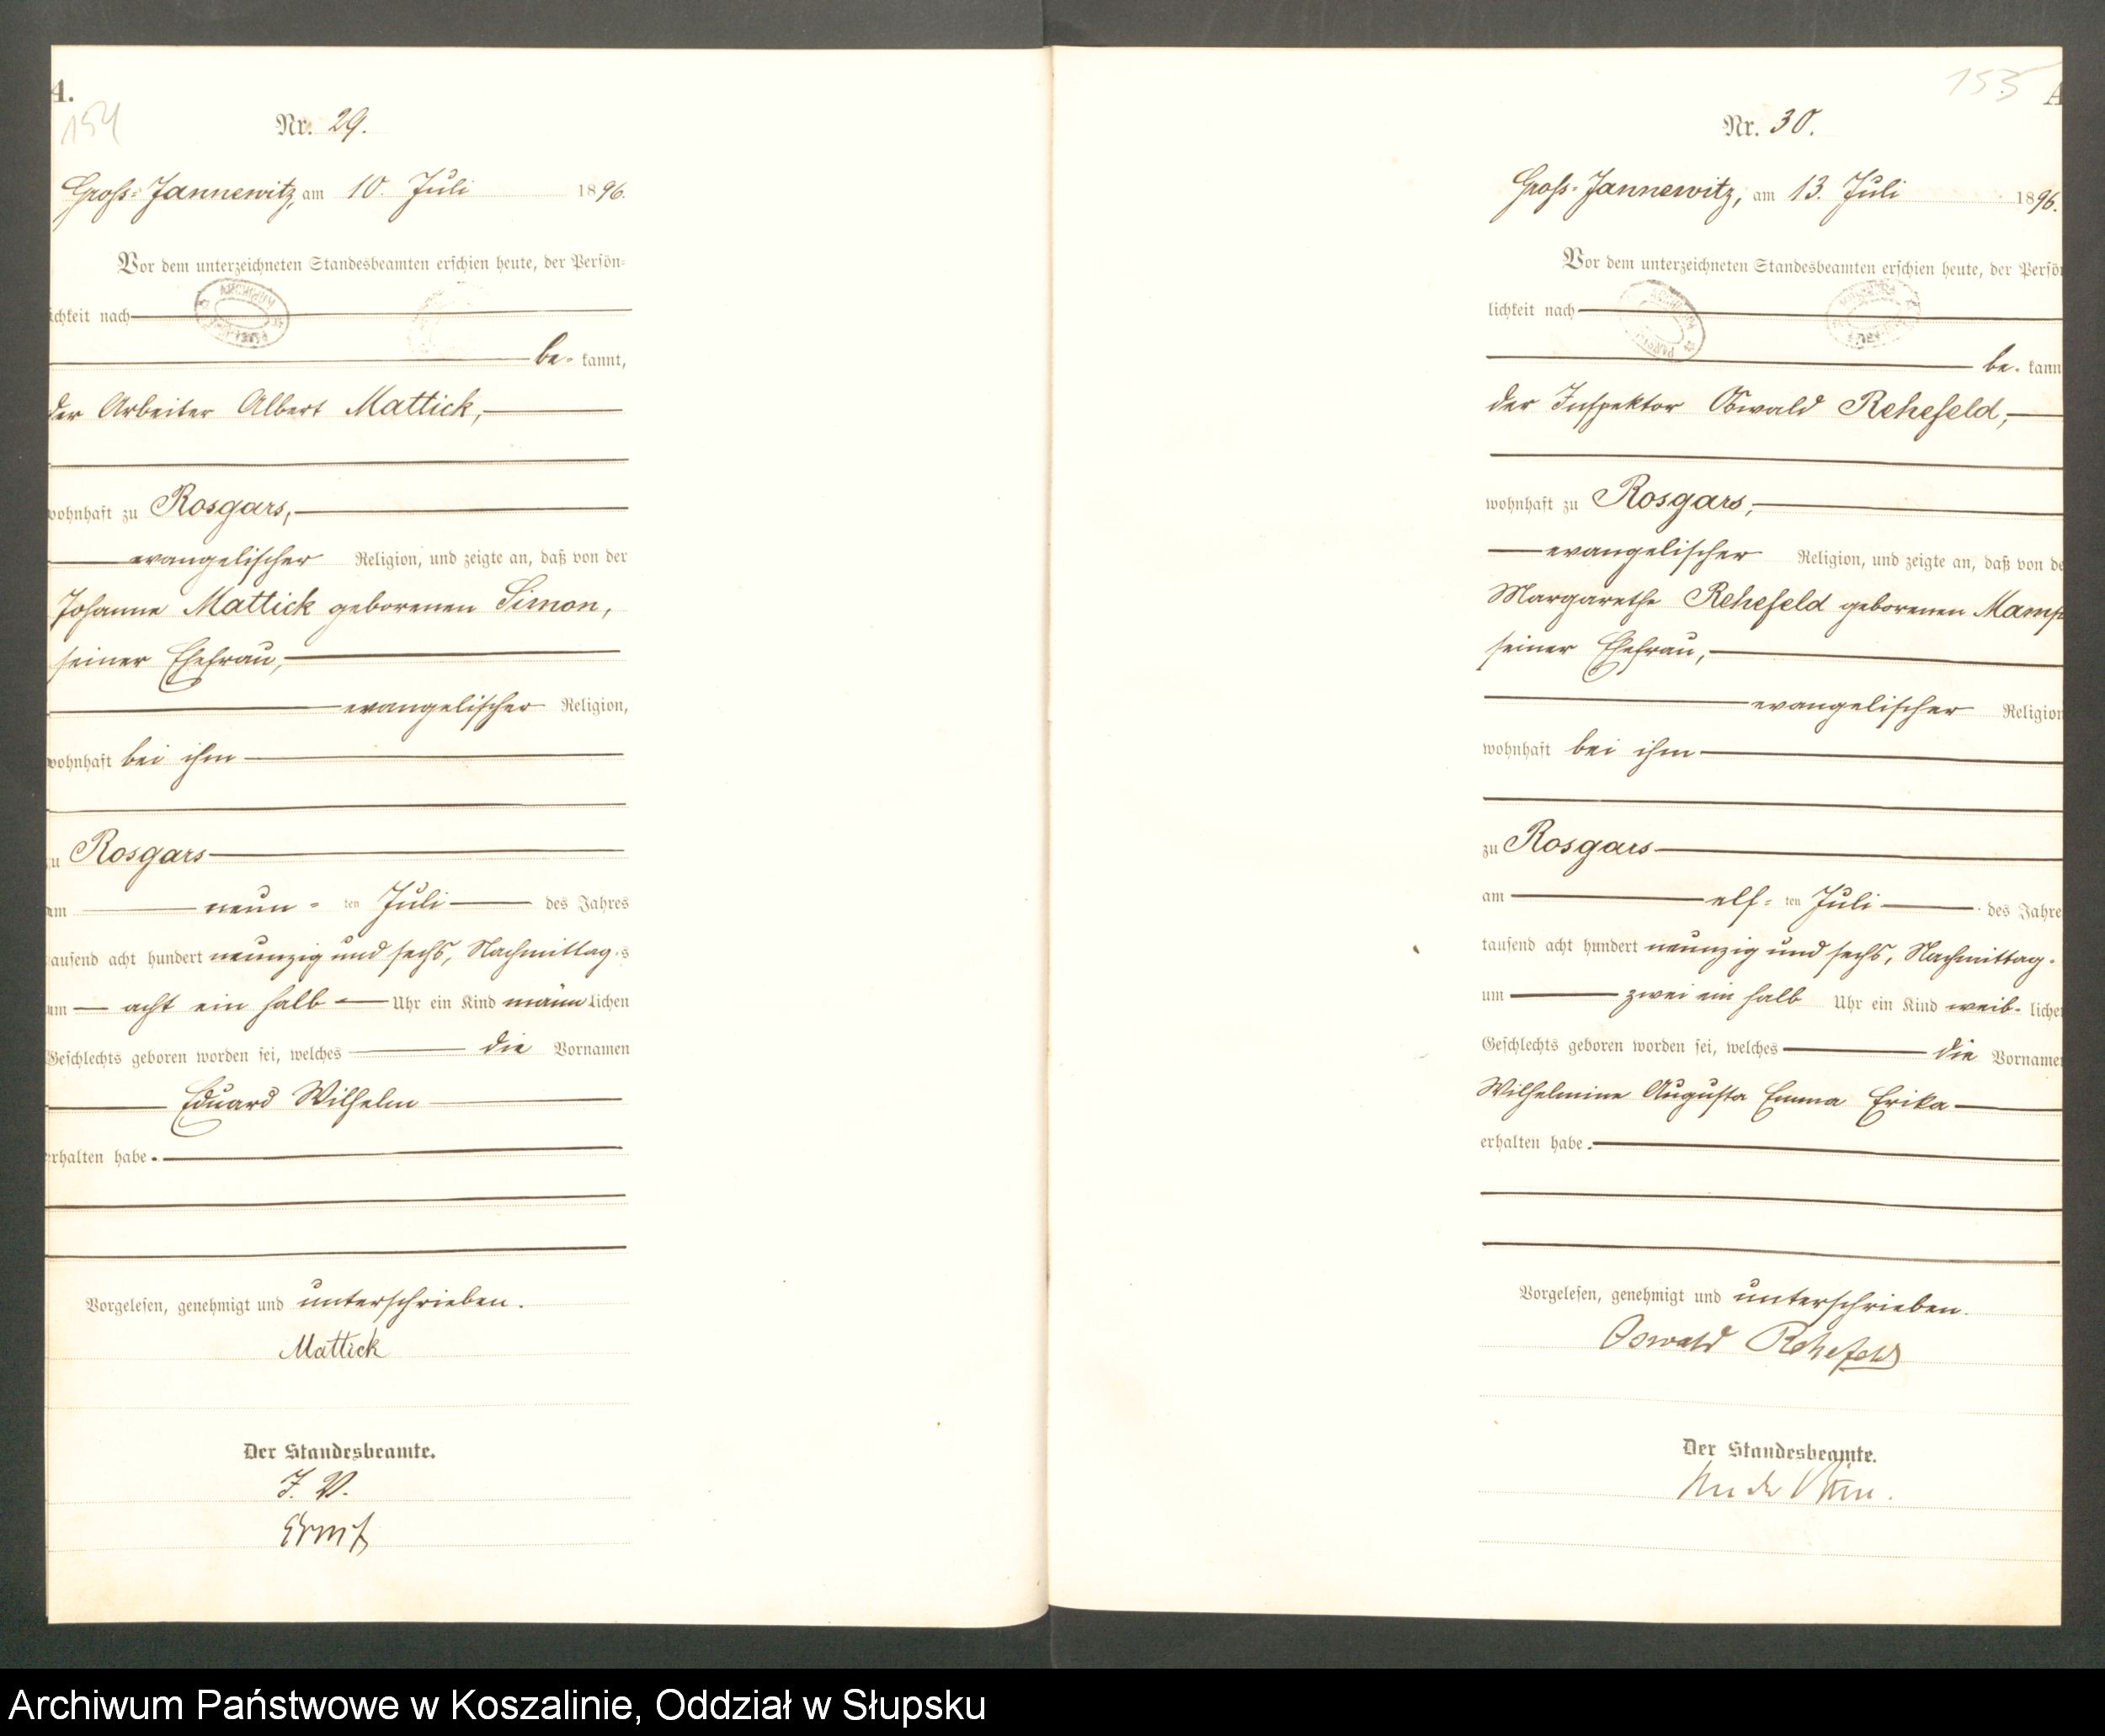 A.
154
Nr. 29.
Groß-Jannewitz, am 10. Juli 1896.
Vor dem unterzeichneten Standesbeamten erschien heute, der Persön-
lichkeit nach
be- kannt,
der Arbeiter Albert Mattick,
wohnhaft zu Rosgars,
evangelischer Religion, und zeigte an, daß von der
Johanne Mattick geborenen Simon,
seiner Ehefrau,
evangelischer Religion,
wohnhaft bei ihm
zu Rosgars
am neun- ten Juli des Jahres
tausend acht hundert neunzig und sechs, Nachmittag s
um acht ein halb Uhr ein Kind männ lichen
Geschlechts geboren worden sei, welches die Vornamen
Eduard Wilhelm
erhalten habe.
Vorgelesen, genehmigt und unterschrieben.
Mattick
Der Standesbeamte.
J. V.
155
A
Nr. 30.
Groß-Jannewitz, am 13. Juli 1896.
Vor dem unterzeichneten Standesbeamten erschien heute, der Persö
lichkeit nach
be- kann
der Inspektor Oswald Rehefeld,
wohnhaft zu Rosgars,
evangelischer Religion, und zeigte an, daß von de
Margarethe Rehefeld geborenen
seiner Ehefrau,
evangelischer Religion
wohnhaft bei ihm
zu Rosgars
am elf- ten Juli des Jahre
tausend acht hundert neunzig und sechs, Nachmittag
um zwei ein halb Uhr ein Kind weib- liche
Geschlechts geboren worden sei, welches die Vorname
Wilhelmine Augusta Emma Erika
erhalten habe.
Vorgelesen, genehmigt und unterschrieben.
Oswald Rehefeld
Der Standesbeamte.
Archiwum Państwowe w Koszalinie, Oddział w Słupsku